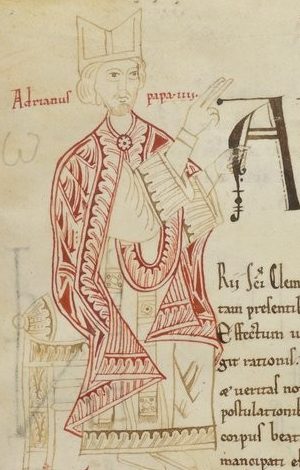 Adrianus papa·iiii·
A
Rii Sc̄i Clem
tam presentib
Effectum u
git rationis.
æ ueritas no
postulationib
corpus beat
mancipati et